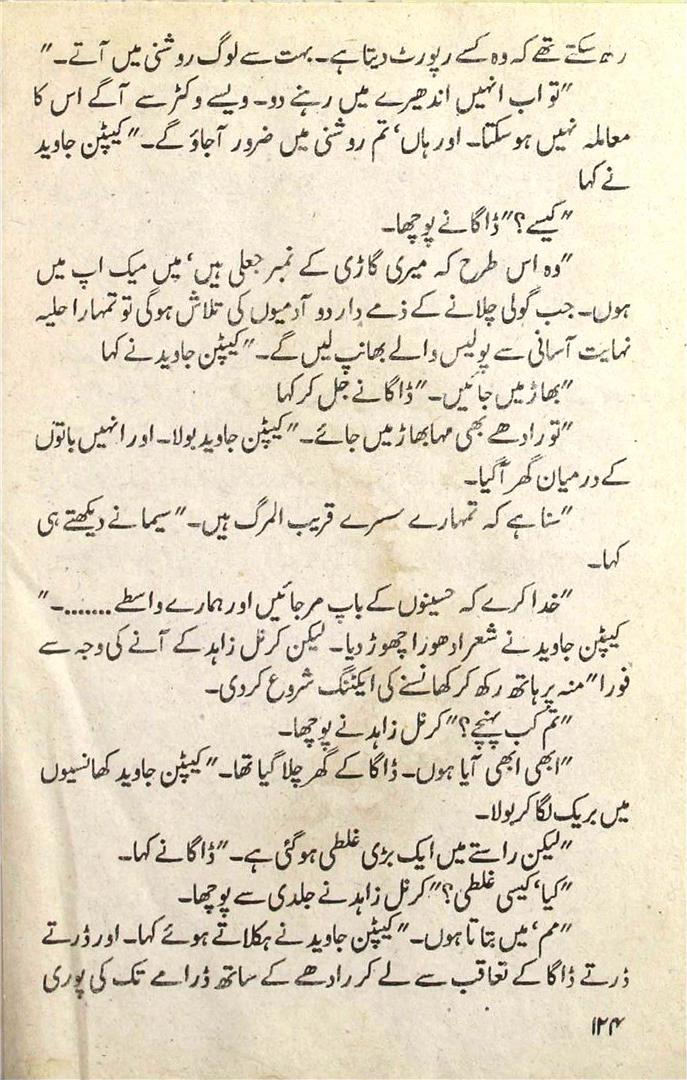 رہ سکتے تھے کہ وہ کسے رپورٹ دیتا ہے۔ بہت سے لوگ روشنی میں آتے۔"
"تو اب انہیں اندھیرے میں رہنے دو۔ ویسے وکٹر سے آگے اس کا
معاملہ نہیں ہو سکتا۔ اور ہاں، تم روشنی میں ضرور آجاؤ گے۔" کیپٹن جاوید
نے کہا
"کیسے؟" ڈاگا نے پوچھا۔
"وہ اس طرح کہ میری گاڑی کے نمبر جعلی ہیں، میں میک اپ میں
ہوں۔ جب گولی چلانے کے ذمے دار دو آدمیوں کی تلاش ہوگی تو تمہارا حلیہ
نہایت آسانی سے پولیس والے بھانپ لیں گے۔" کیپٹن جاوید نے کہا
"بھاڑ میں جائیں۔" ڈاگا نے جل کر کہا
"تو رادھے بھی مہا بھاڑ میں جائے۔" کیپٹن جاوید بولا۔ اور انہیں باتوں
کے درمیان گھر آگیا۔
"سنا ہے کہ تمہارے سسرے قریب المرگ ہیں۔" سیما نے دیکھتے ہی
کہا۔
"خدا کرے کہ حسینوں کے باپ مرجائیں اور ہمارے واسطے .......۔"
کیپٹن جاوید نے شعر ادھورا چھوڑ دیا۔ لیکن کرنل زاہد کے آنے کی وجہ سے
فورا" منہ پر ہاتھ رکھ کر کھانسنے کی ایکٹنگ شروع کردی۔
"تم کب پہنچے؟" کرنل زاہد نے پوچھا۔
"ابھی ابھی آیا ہوں۔ ڈاگا کے گھر چلا گیا تھا۔" کیپٹن جاوید کھانسیوں
میں بریک لگا کر بولا۔
"لیکن راستے میں ایک بڑی غلطی ہوگئی ہے۔" ڈاگا نے کہا۔
"کیا، کیسی غلطی؟" کرنل زاہد نے جلدی سے پوچھا۔
"مم، میں بتاتا ہوں۔" کیپٹن جاوید نے ہکلاتے ہوئے کہا۔ اور ڈرتے
ڈرتے ڈاگا کے تعاقب سے لے کر رادھے کے ساتھ ڈرامے تک کی پوری
۱۲۴